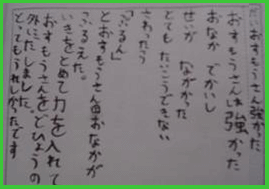 おすもうさん強かった
おすもうさんは強かった
おなか でかいし
せいが ながかった
とても たいこうできない
さわったら
「ぶるん」
とおすもうさんのおなかが
ふるえた。
いきをとめて力を入れて
おすもうさんをどひょうの
外にだしました。
とってもうれしかったです